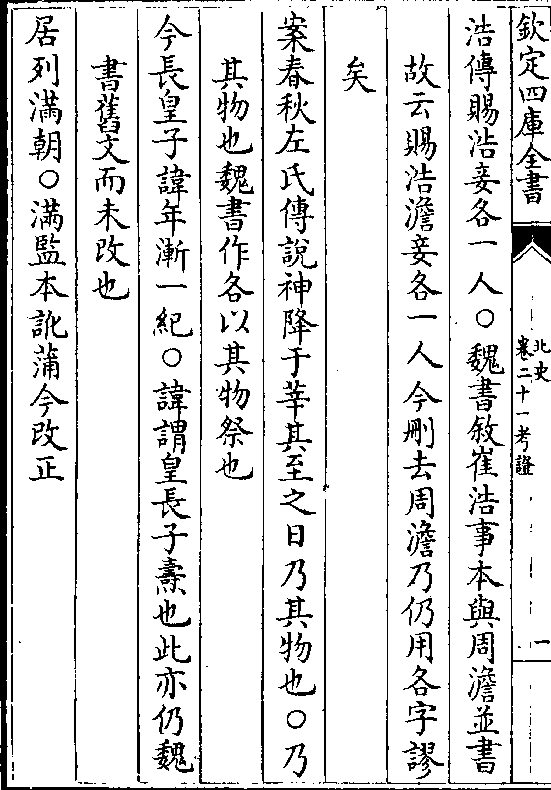 欽定四庫全書
北史
卷二十一考證
一
浩傳賜浩妾各一人○魏書敘崔浩事本與周澹並書
故云賜浩澹妾各一人今刪去周澹乃仍用各字謬
矣
案春秋左氏傳說神降于莘其至之日乃其物也○乃
其物也魏書作各以其物祭也
今長皇子諱年漸一紀○諱謂皇長子燾也此亦仍魏
書舊文而未改也
居列滿朝○滿監本訛蒲今改正